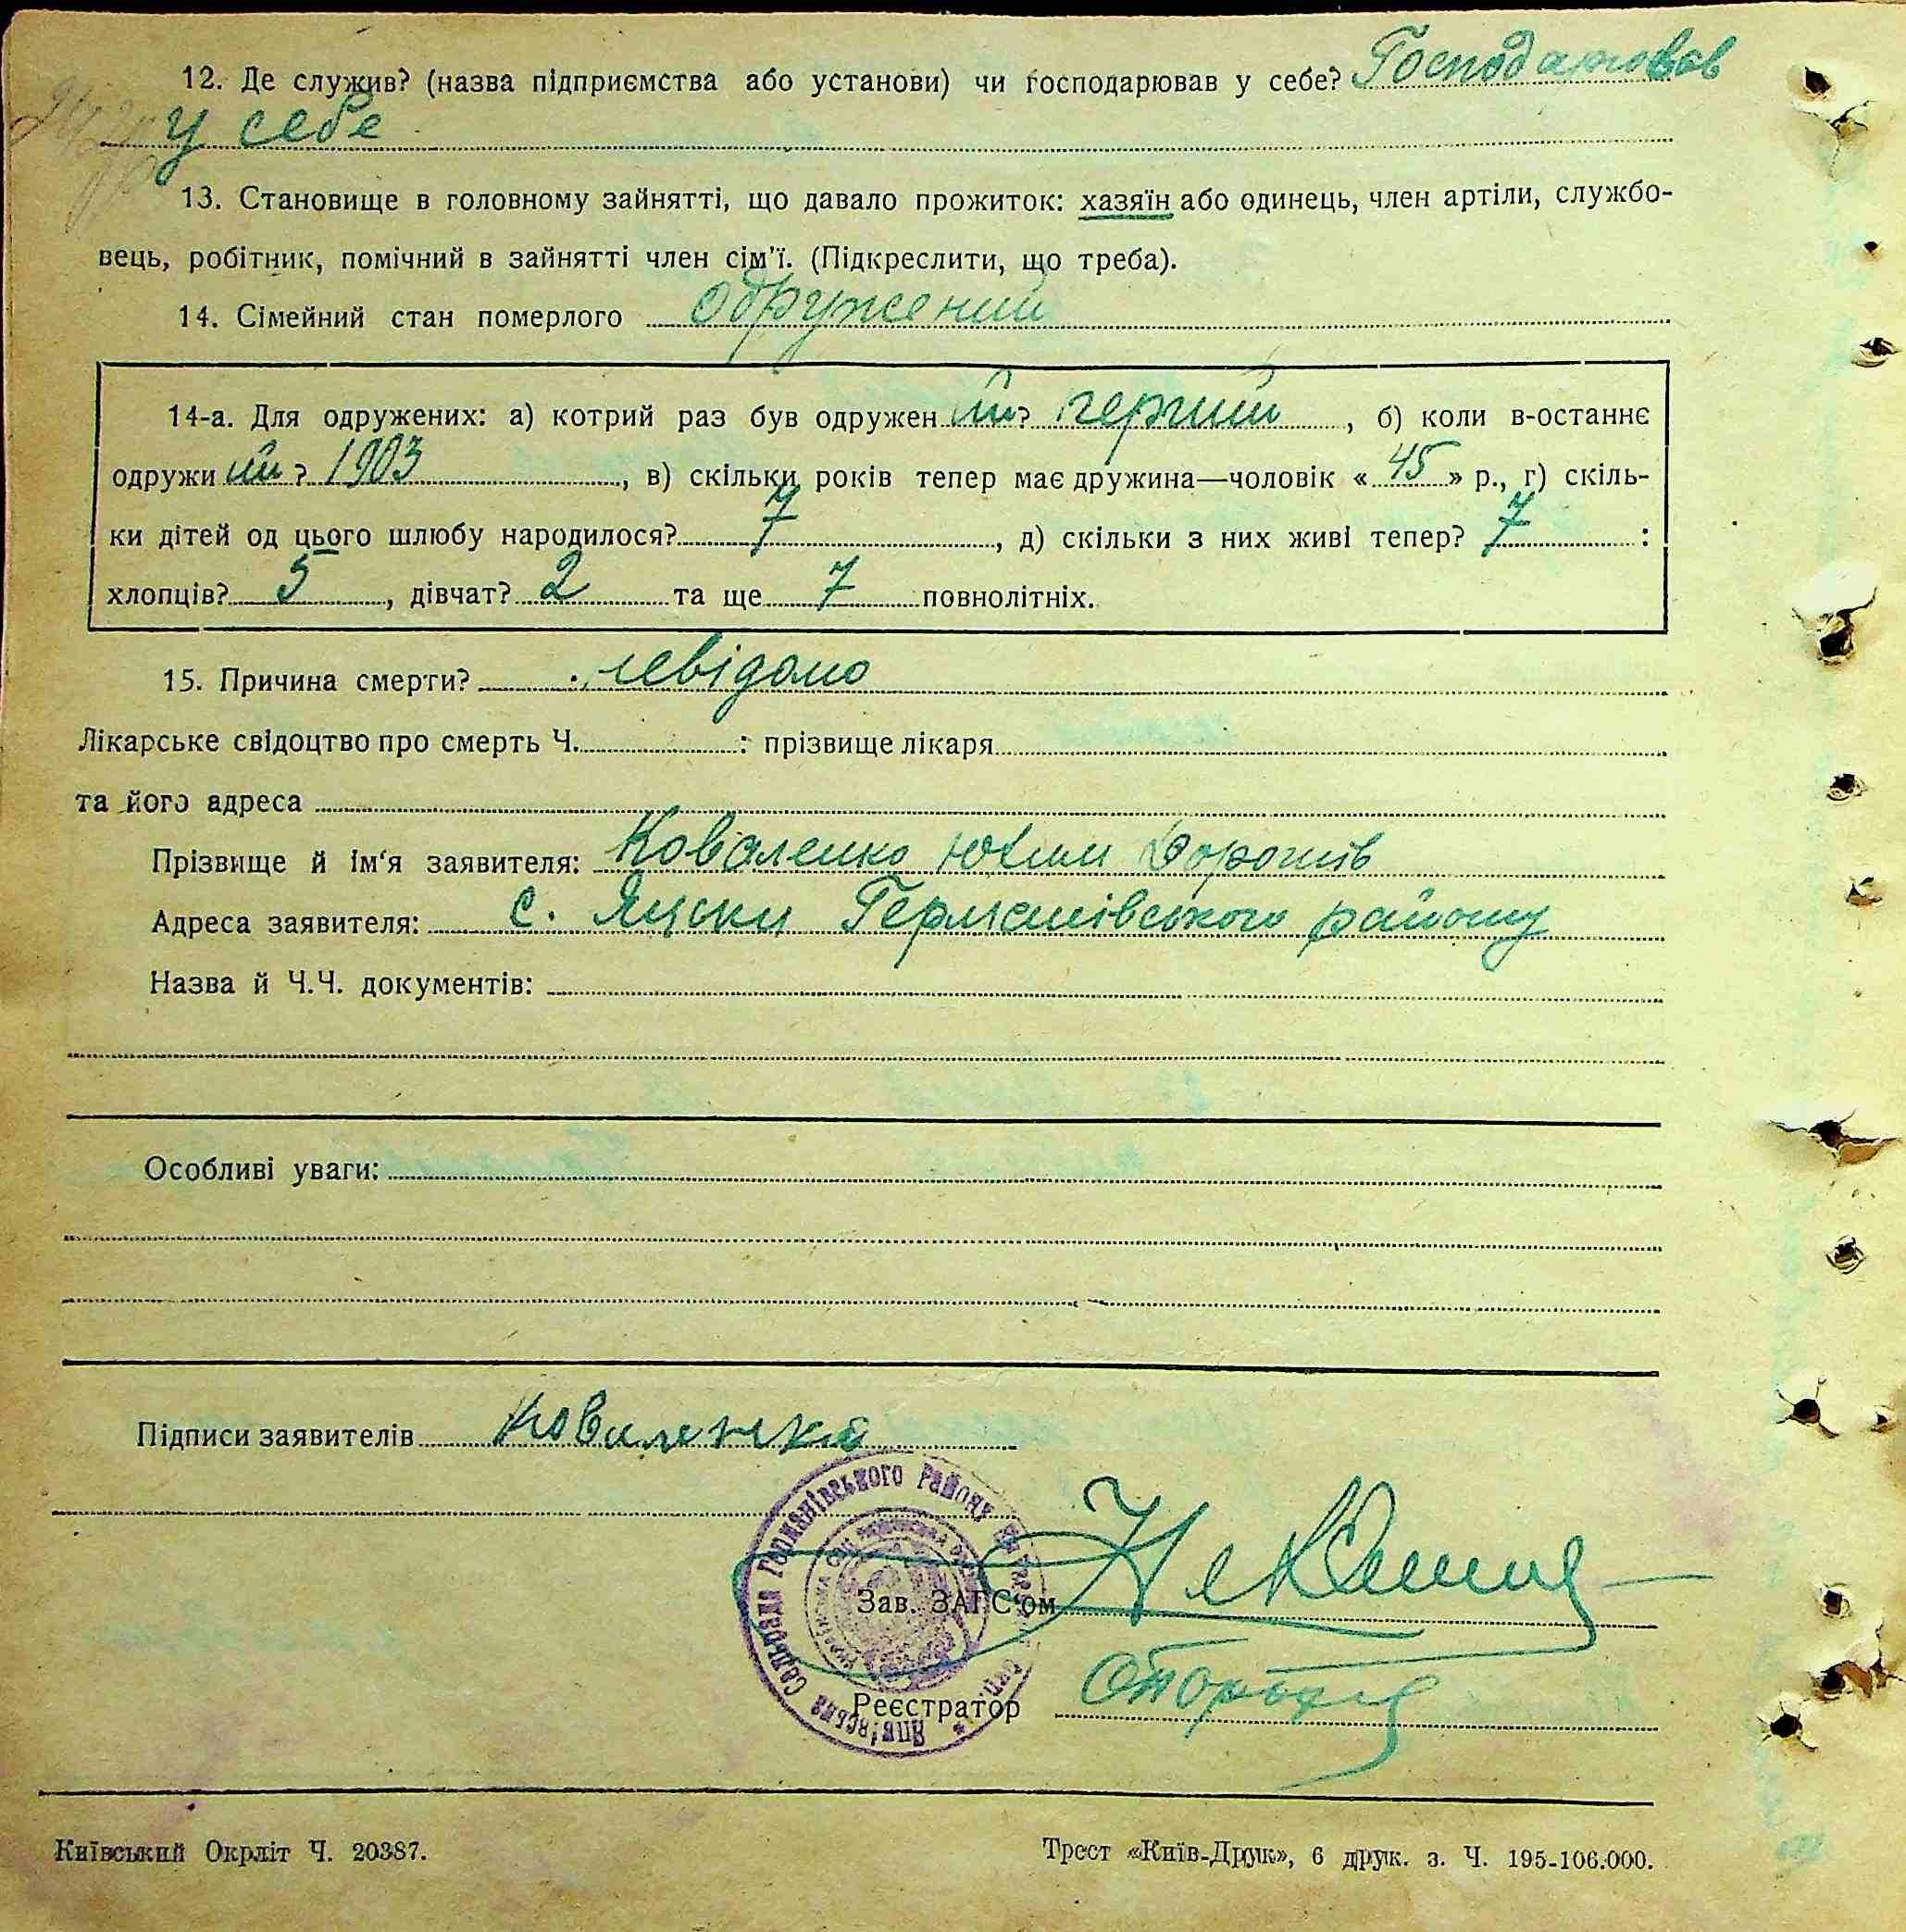 12. Де служив? (назва підприємства або установи) чи господарював у себе? Господарював
у себе
13. Становище в головному зайнятті, що давало прожиток: хазяїн або одинець, член артіли, службо-
вець, робітник, помічний в зайнятті член сім'ї. (Підкреслити, що треба).
14. Сімейний стан померлого одружений
14-а. Для одружених: а) котрий раз був одружен ий? перший, б) коли в-останнє
одружи ий? 1903, в) скільки років тепер має дружина—чоловік «45» р., г) скіль-
ки дітей од цього шлюбу народилося? 7, д) скільки з них живі тепер? 7:
хлопців? 5, дівчат? 2 та ще 7 повнолітніх.
15. Причина смерти? невідомо
Лікарське свідоцтво про смерть Ч. : прізвище лікаря
та його адреса
Прізвище й ім'я заявителя: Коваленко Юхим
Адреса заявителя: с. Яцки Германівського району
Назва й Ч.Ч. документів:
Особливі уваги:
Підписи заявителів Коваленко
Германівського району
Зав. ЗАГС'ом
Реєстратор
Київський Окрліт Ч. 20387.
Трест «Київ-Друк», 6 друк. з. Ч. 195-106.000.